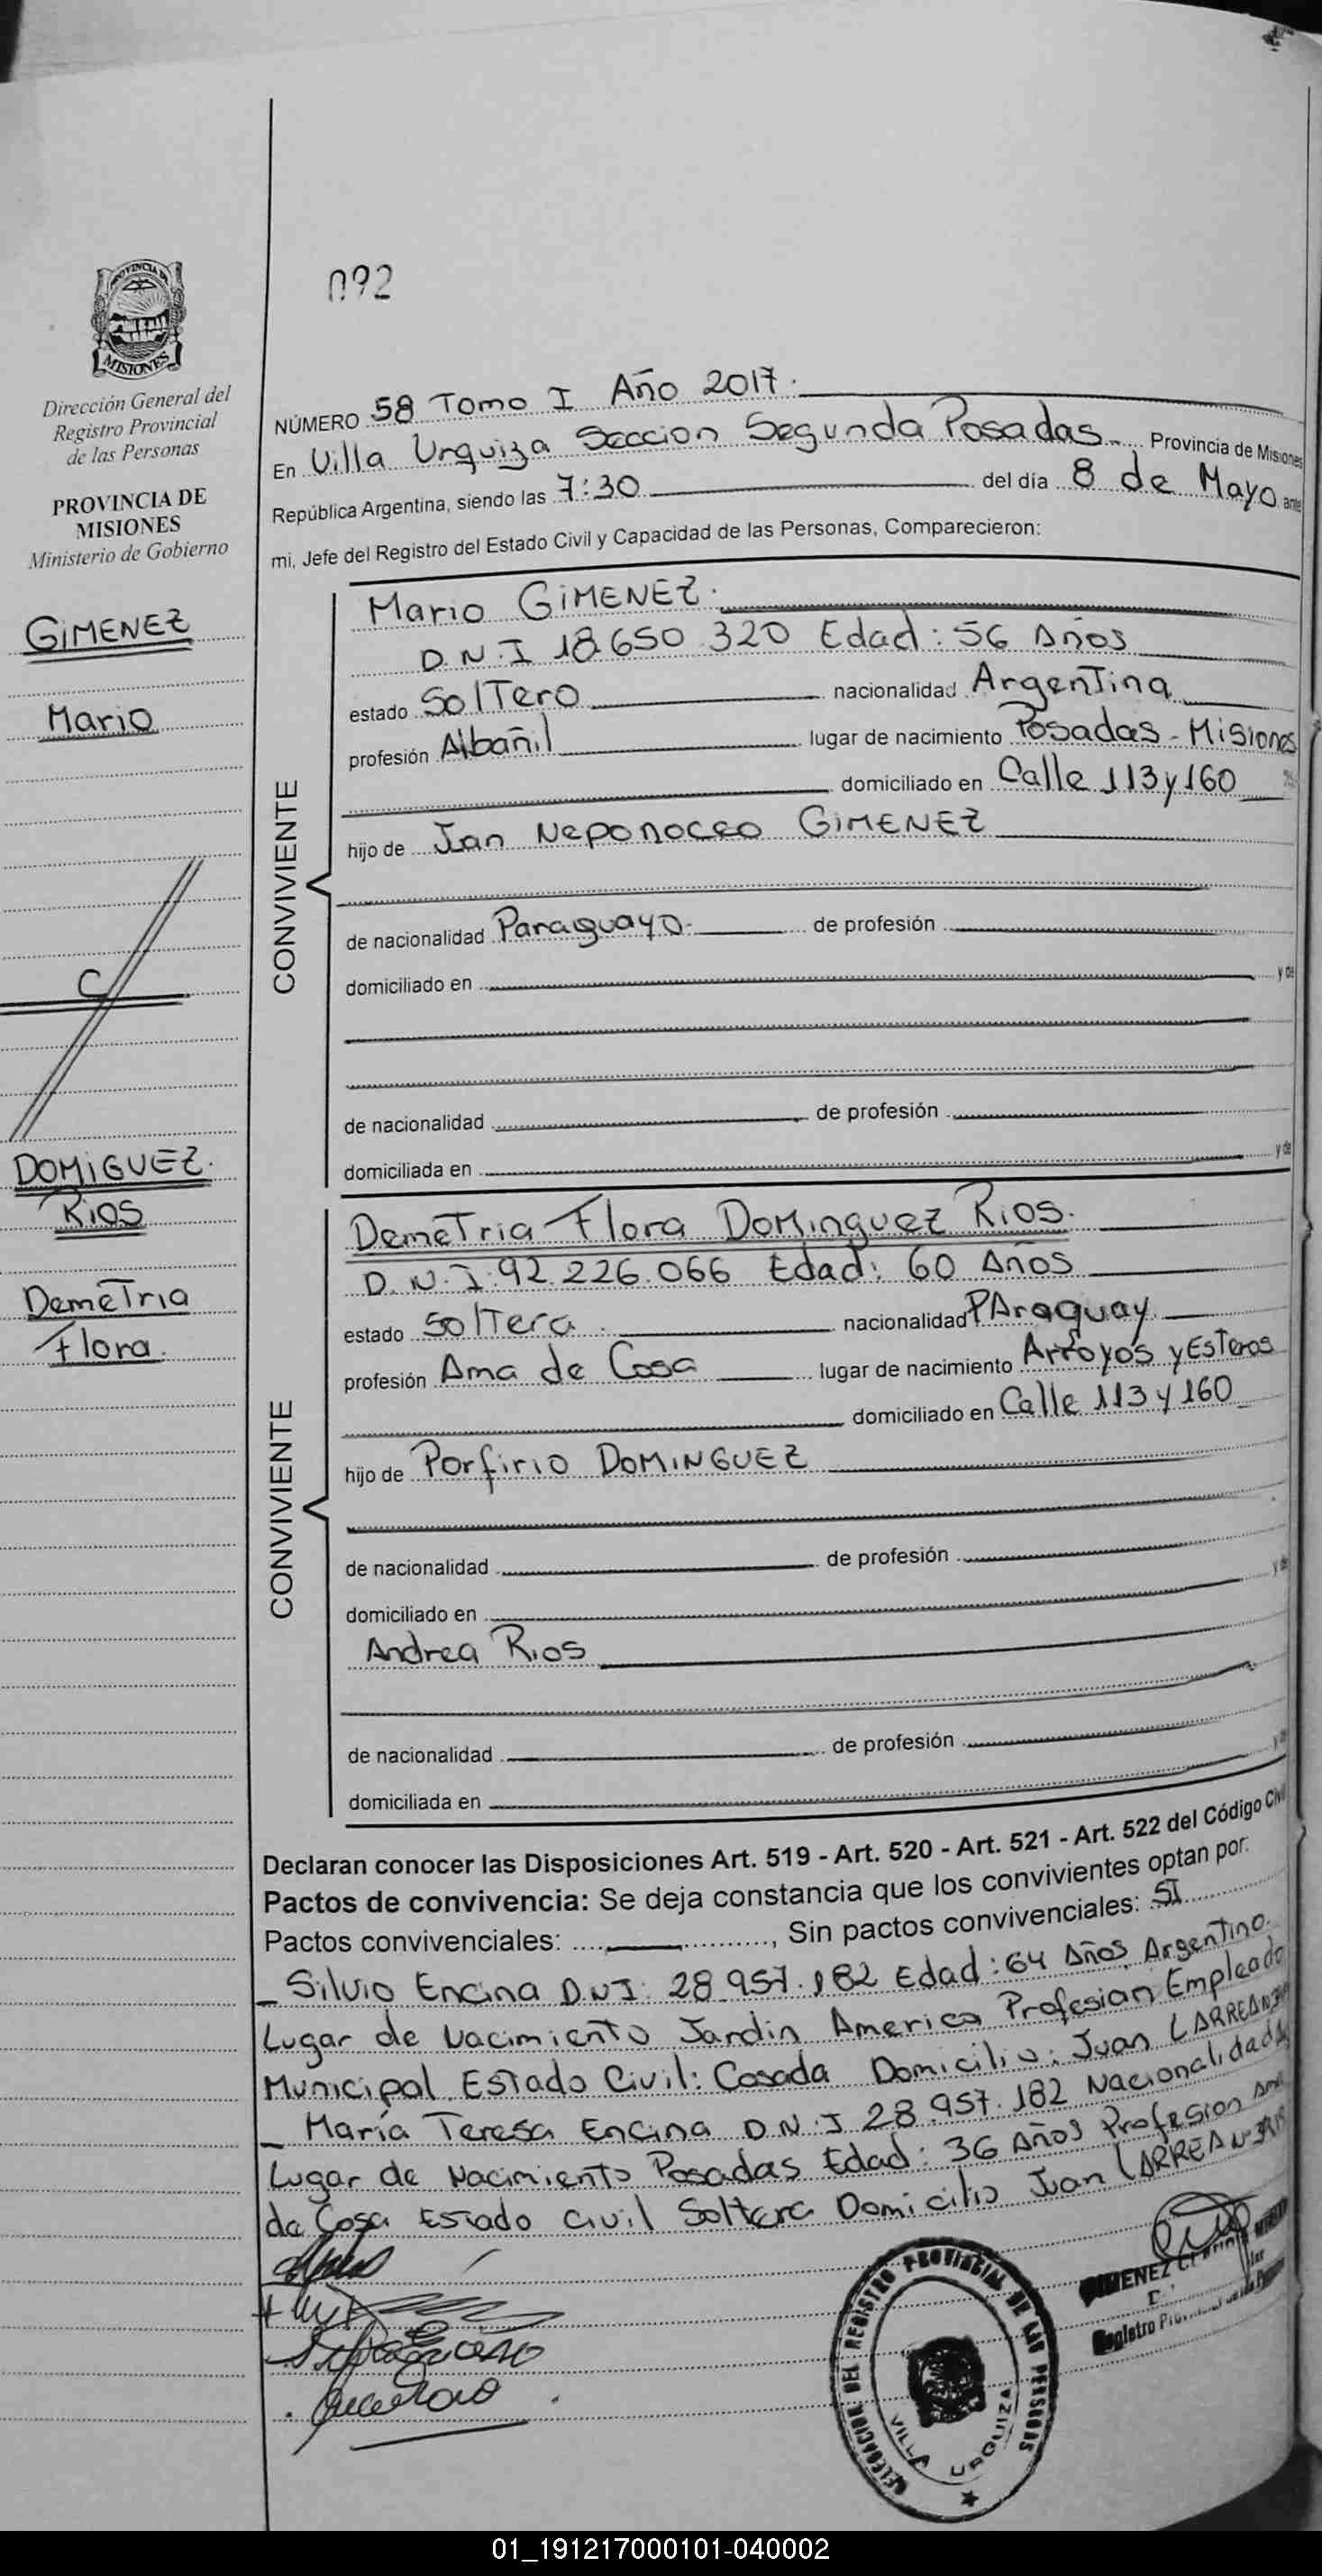 092
PROVINCIA DE
MISIONES
Dirección General del
Registro Provincial
de las Personas
PROVINCIA DE
MISIONES
Ministerio de Gobierno
GIMENEZ
Mario
C
DOMIGUEZ.
RIOS
Demetria
Flora.
NÚMERO 58 Tomo I Año 2017.
En Villa Urquiza Seccion Segunda Posadas Provincia de Misiones
República Argentina, siendo las 7:30 del día 8 de Mayo ante
mi, Jefe del Registro del Estado Civil y Capacidad de las Personas, Comparecieron:
CONVIVIENTE
Mario GIMENEZ.
D.N.I 18.650 320 Edad: 56 Años
estado Soltero nacionalidad Argentina
profesión Albañil lugar de nacimiento Posadas - Misiones
domiciliado en Calle 113 y 160
hijo de Jan Neponoceo GIMENEZ
de nacionalidad Paraguayo. de profesión
domiciliado en y de
de nacionalidad de profesión
domiciliada en y de
CONVIVIENTE
Demetria Flora Dominguez Rios.
D.N.I: 92.226.066 Edad: 60 Años
estado Soltera. nacionalidad PAraguay.
profesión Ama de Casa lugar de nacimiento Arroyos y Esteros
domiciliado en Calle 113 y 160
hijo de Porfirio DOMINGUEZ
de nacionalidad de profesión
domiciliado en y de
Andrea Rios
de nacionalidad de profesión
domiciliada en y de
Declaran conocer las Disposiciones Art. 519 - Art. 520 - Art. 521 - Art. 522 del Código Civil
Pactos de convivencia: Se deja constancia que los convivientes optan por:
Pactos convivenciales: , Sin pactos convivenciales: SI
_ Silvio Encina D.N.I: 28.957.182 Edad: 64 Años, Argentino.
Lugar de Nacimiento Jardin America Profesian Empleado
Municipal Estado Civil: Casada Domicilio: Juan LARREA
_ María Teresa Encina D.N.I 28.957.182 Nacionalidad
Lugar de Nacimiento Posadas Edad: 36 Años Profesion Ama
de Casa Estado Civil Soltera Domicilio Juan LARREA
DELEGACION DEL REGISTRO PROVINCIAL DE LAS PERSONAS
VILLA URQUIZA
GIMENEZ
Registro
01_191217000101-040002